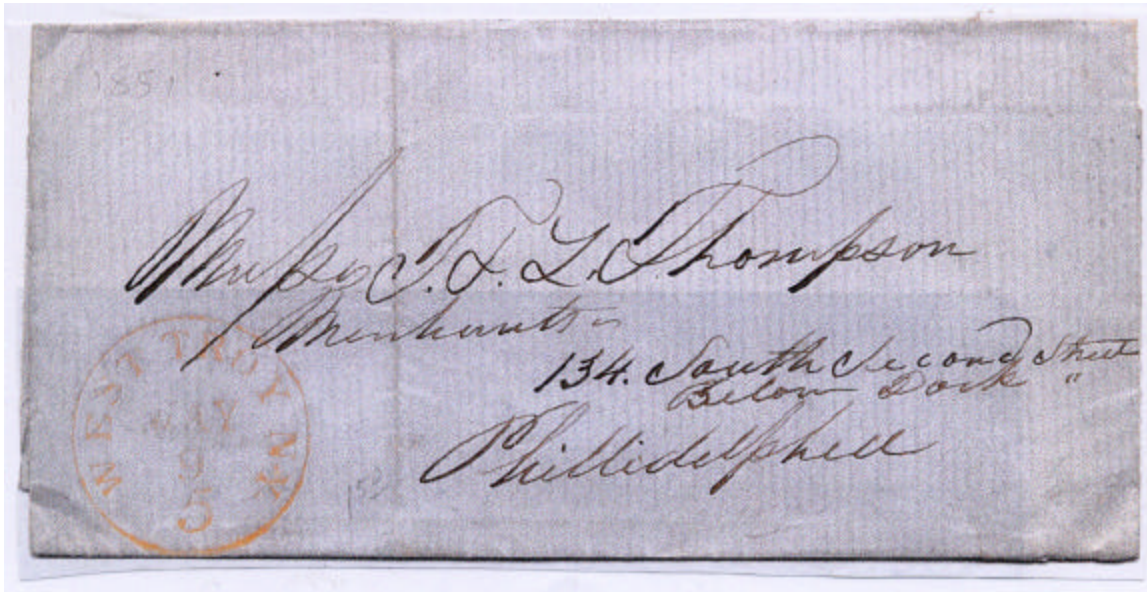 1851
Messrs T. & L. Thompson
Merchants
134. South Second Street
Below Dock "
Phillidelphia
WEST TROY N.Y.
MAY
9
5